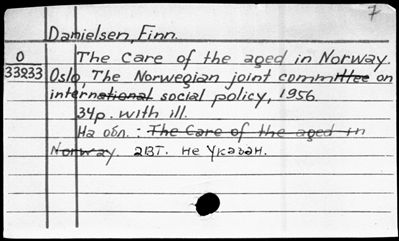 7
Danielsen, Finn.
O The Care of the aged in Norway.
33933 Oslo, The Norwegian joint committee on
international social policy, 1956.
34p. with ill.
На обл.: The Care of the aged in
Norway. Авт. не указан.